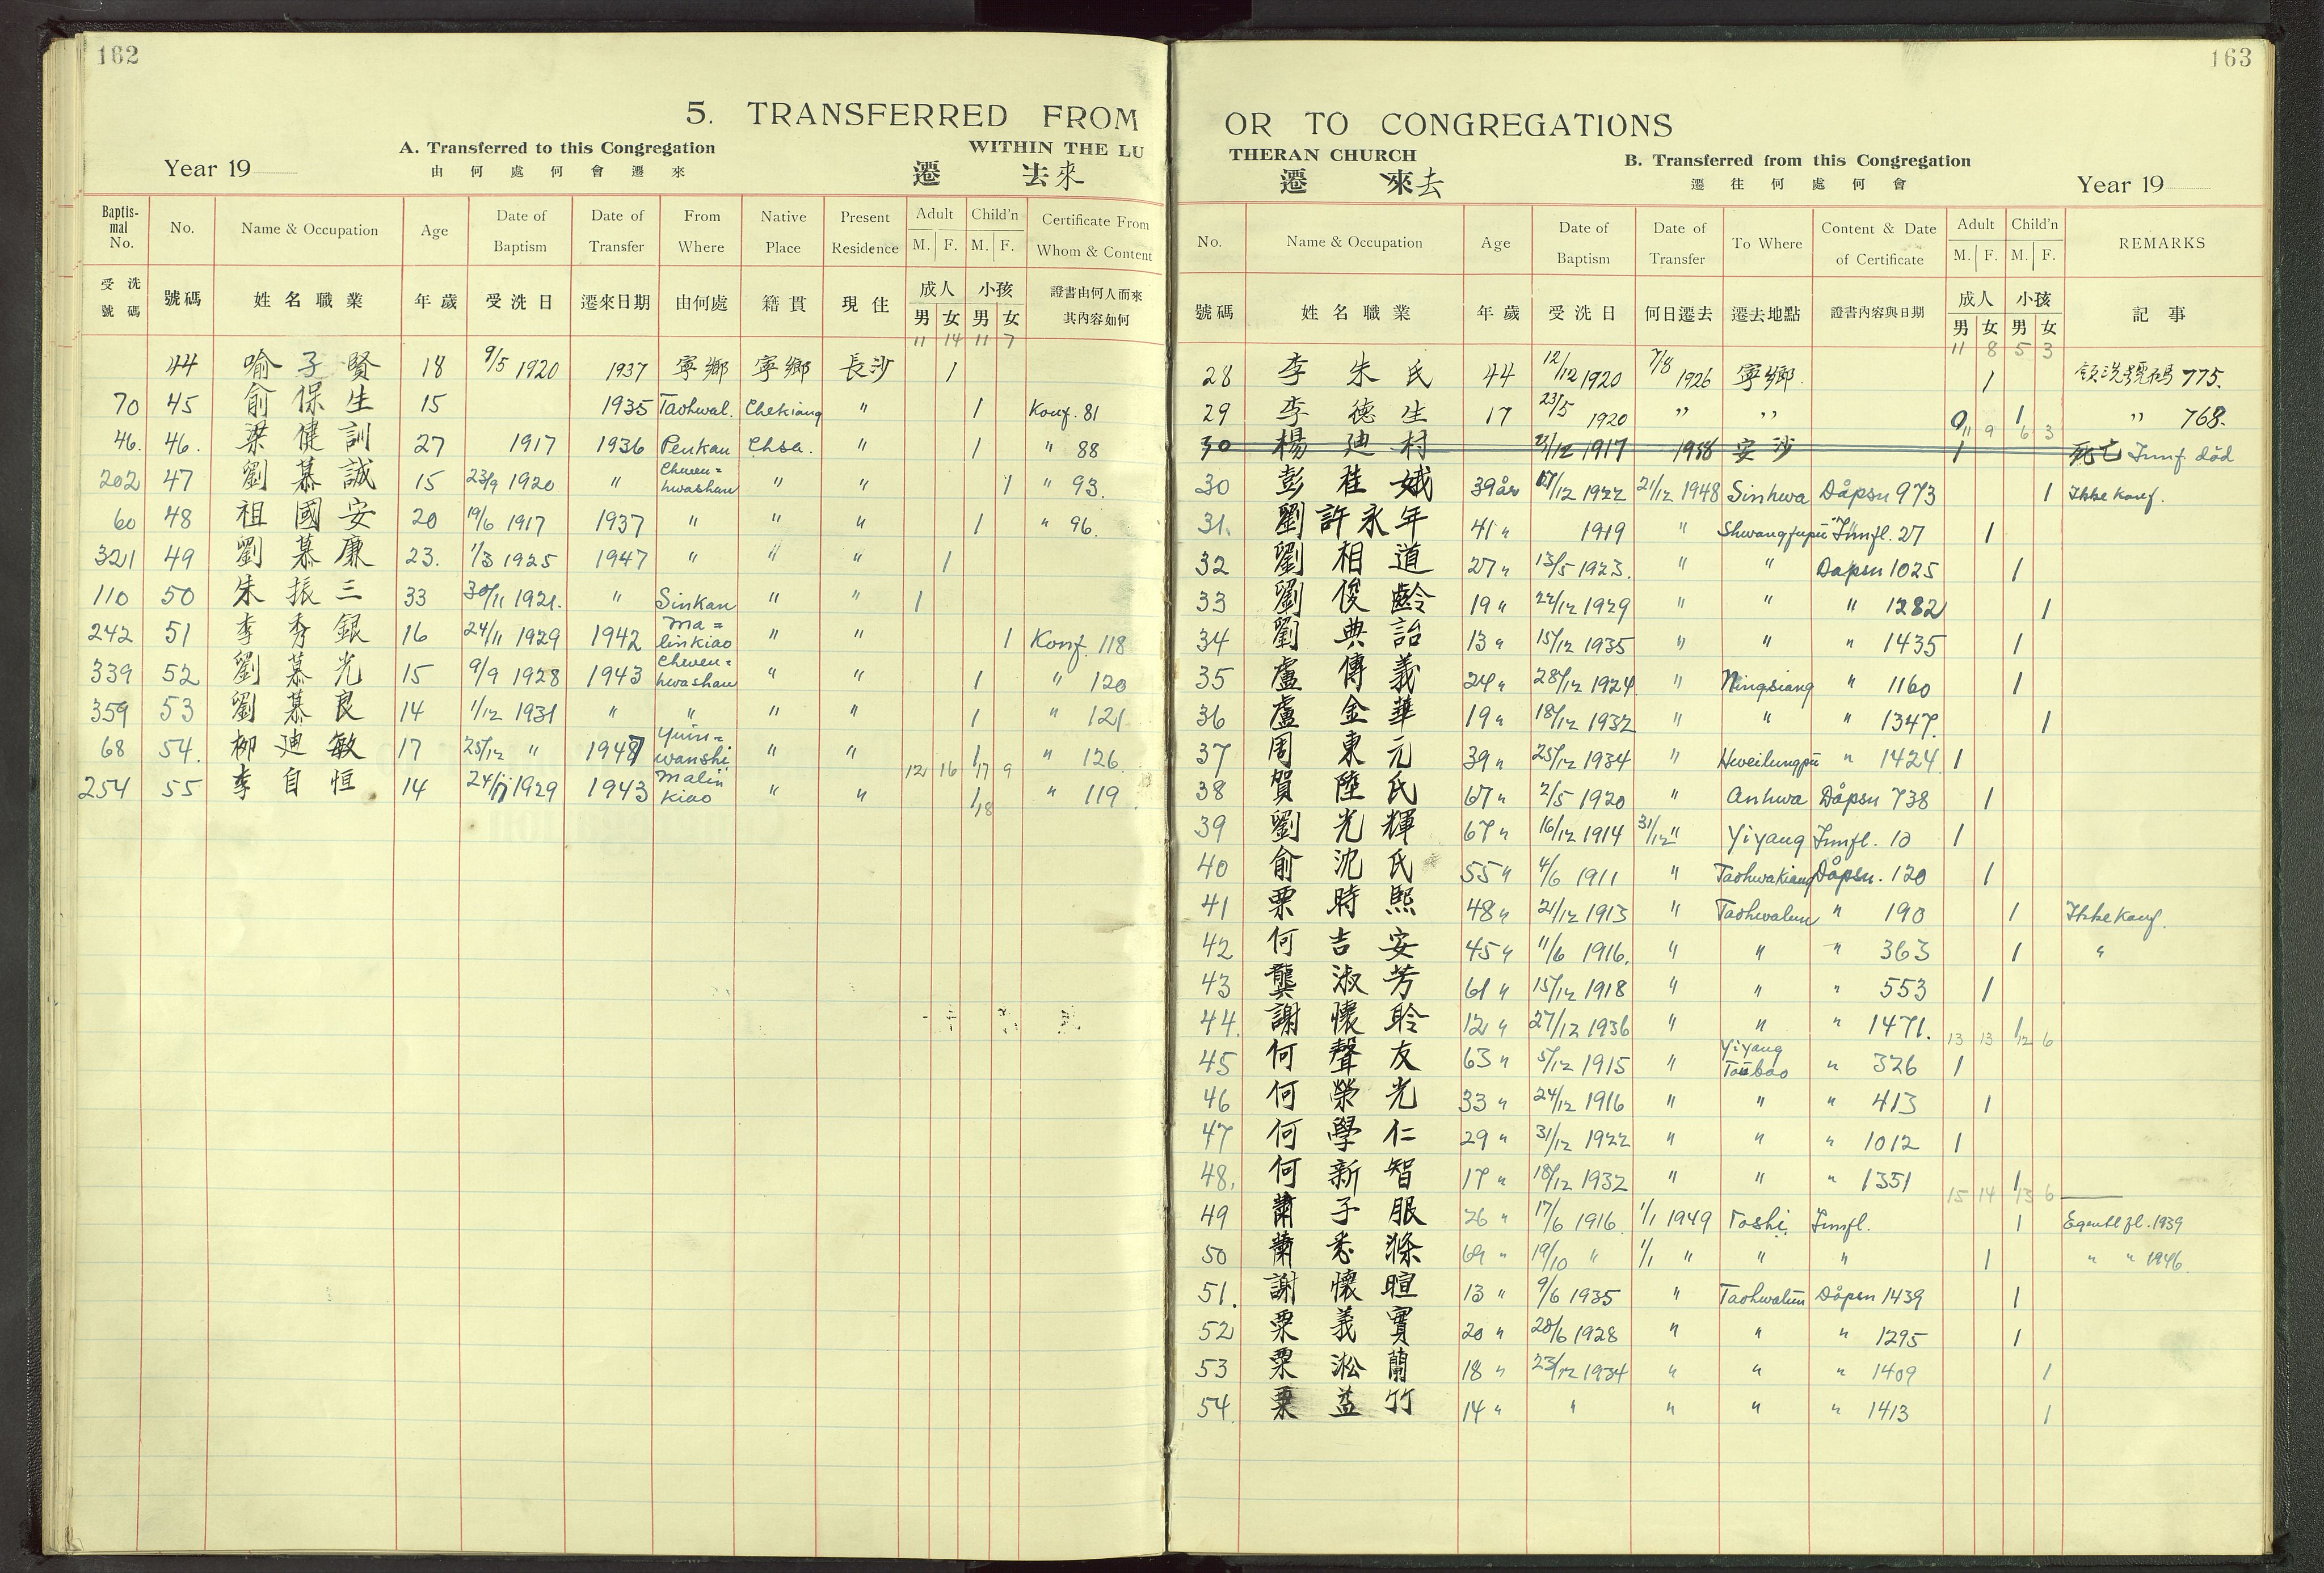 162
5. TRANSFERRED FROM
A. Transferred to this Congregation
WITHIN THE LU
Year 19
由何處何會遷來
遷 去來
Baptismal No. No. Name & Occupation Age Date of Baptism Date of Transfer From Where Native Place Present Residence Adult M. F. Child'n M. F. Certificate From Whom & Content
受洗號碼 號碼 姓名職業 年歲 受洗日 遷來日期 由何處 籍貫 現住 成人 男 女 小孩 男 女 證書由何人而來其內容如何
11 14 11 7
44 喻子賢 18 9/5 1920 1937 寧鄉 寧鄉 長沙 1
70 45 俞保生 15 1935 Taohwal. Chekiang " 1 Konf. 81
46. 46. 梁健訓 27 1917 1936 Penkau Chsa. " 1 " 88
202 47 劉慕誠 15 23/9 1920 " Chwen=hwashan " " 1 " 93.
60 48 祖國安 20 19/6 1917 1937 " " " 1 " 96.
321 49 劉慕廉 23. 1/3 1925 1947 " " " 1
110 50 朱振三 33 30/11 1921. " Sinkau " " 1
242 51 李秀銀 16 24/11 1929 1942 Ma=linkiao " " 1 Konf. 118
339 52 劉慕光 15 9/9 1928 1943 Chwen=hwashan " " 1 " 120
359 53 劉慕良 14 1/12 1931 " " " " 1 " 121
68 54. 柳迪敏 17 25/12 " 1947 Yuin=wanshi " " 1 " 126
12 16 17 9
254 55 李自恒 14 24/11 1929 1943 Malinkiao " " 1 " 119
18
163
OR TO CONGREGATIONS
THERAN CHURCH
B. Transferred from this Congregation
遷 來去
遷往何處何會
Year 19
No. Name & Occupation Age Date of Baptism Date of Transfer To Where Content & Date of Certificate Adult M. F. Child'n M. F. REMARKS
號碼 姓名職業 年歲 受洗日 何日遷去 遷去地點 證書內容與日期 成人 男 女 小孩 男 女 記事
11 8 5 3
28 李朱氏 44 12/12 1920 7/8 1926 寧鄉 1 領洗號碼 775.
29 李德生 17 23/5 1920 " " 0 1 " 768.
11 9 6 3
30 楊迪村 21/12 1917 1938 安沙 1 死亡 Innf død
30 彭桂娥 39 år 17/12 1922 21/12 1948 Sinhwa Dåpsn 973 1 Ikke konf.
31. 劉許永年 41 " 1919 " Shwangfupu Innfl. 27 1
32 劉相道 27 " 13/5 1923. " " Dapsn 1025 1
33 劉俊齡 19 " 22/12 1929 " " " 1282 1
34 劉典詒 13 " 15/12 1935 " " " 1435 1
35 盧傳義 24 " 28/12 1924 " Ningsiang " 1160 1
36 盧金華 19 " 18/12 1932 " " " 1347. 1
37 周東元 39 " 25/12 1934 " Hweilungpu " 1424 1
38 賀陸氏 67 " 2/5 1920 " Anhwa Dåpsn 738 1
39 劉光輝 67 " 16/12 1914 31/12 " Yiyang Innfl. 10 1
40 俞沈氏 55 " 4/6 1911 " Taohwakiang Dåpsn. 120 1
41 粟時熙 48 " 21/12 1913 " Taohwalun " 190 1 Ikke konf.
42 何吉安 45 " 11/6 1916. " " " 363 1 "
43 龔淑芳 61 " 15/12 1918 " " " 553 1
44. 謝懷聆 12 " 27/12 1936 " " " 1471. 1
13 13 12 6
45 何聲友 63 " 5/12 1915 " Yiyang Toübao " 326 1
46 何榮光 33 " 24/12 1916 " " " 413 1
47 何學仁 29 " 31/12 1922 " " " 1012 1
48. 何新智 17 " 18/12 1932 " " " 1351 1
15 14 13 6
49 蕭子服 26 " 17/6 1916 1/1 1949 Toshi Innfl. 1 Egentl fl. 1939
50 蕭悉滌 69 " 19/10 " 1/1 " " " 1 " " 1946.
51. 謝懷暄 13 " 9/6 1935 " Taohwalun Dåpsn 1439 1
52 粟義實 20 " 20/6 1928 " " " 1295 1
53 粟淞蘭 18 " 23/12 1934 " " " 1409 1
54. 粟益竹 14 " " " " " 1413 1